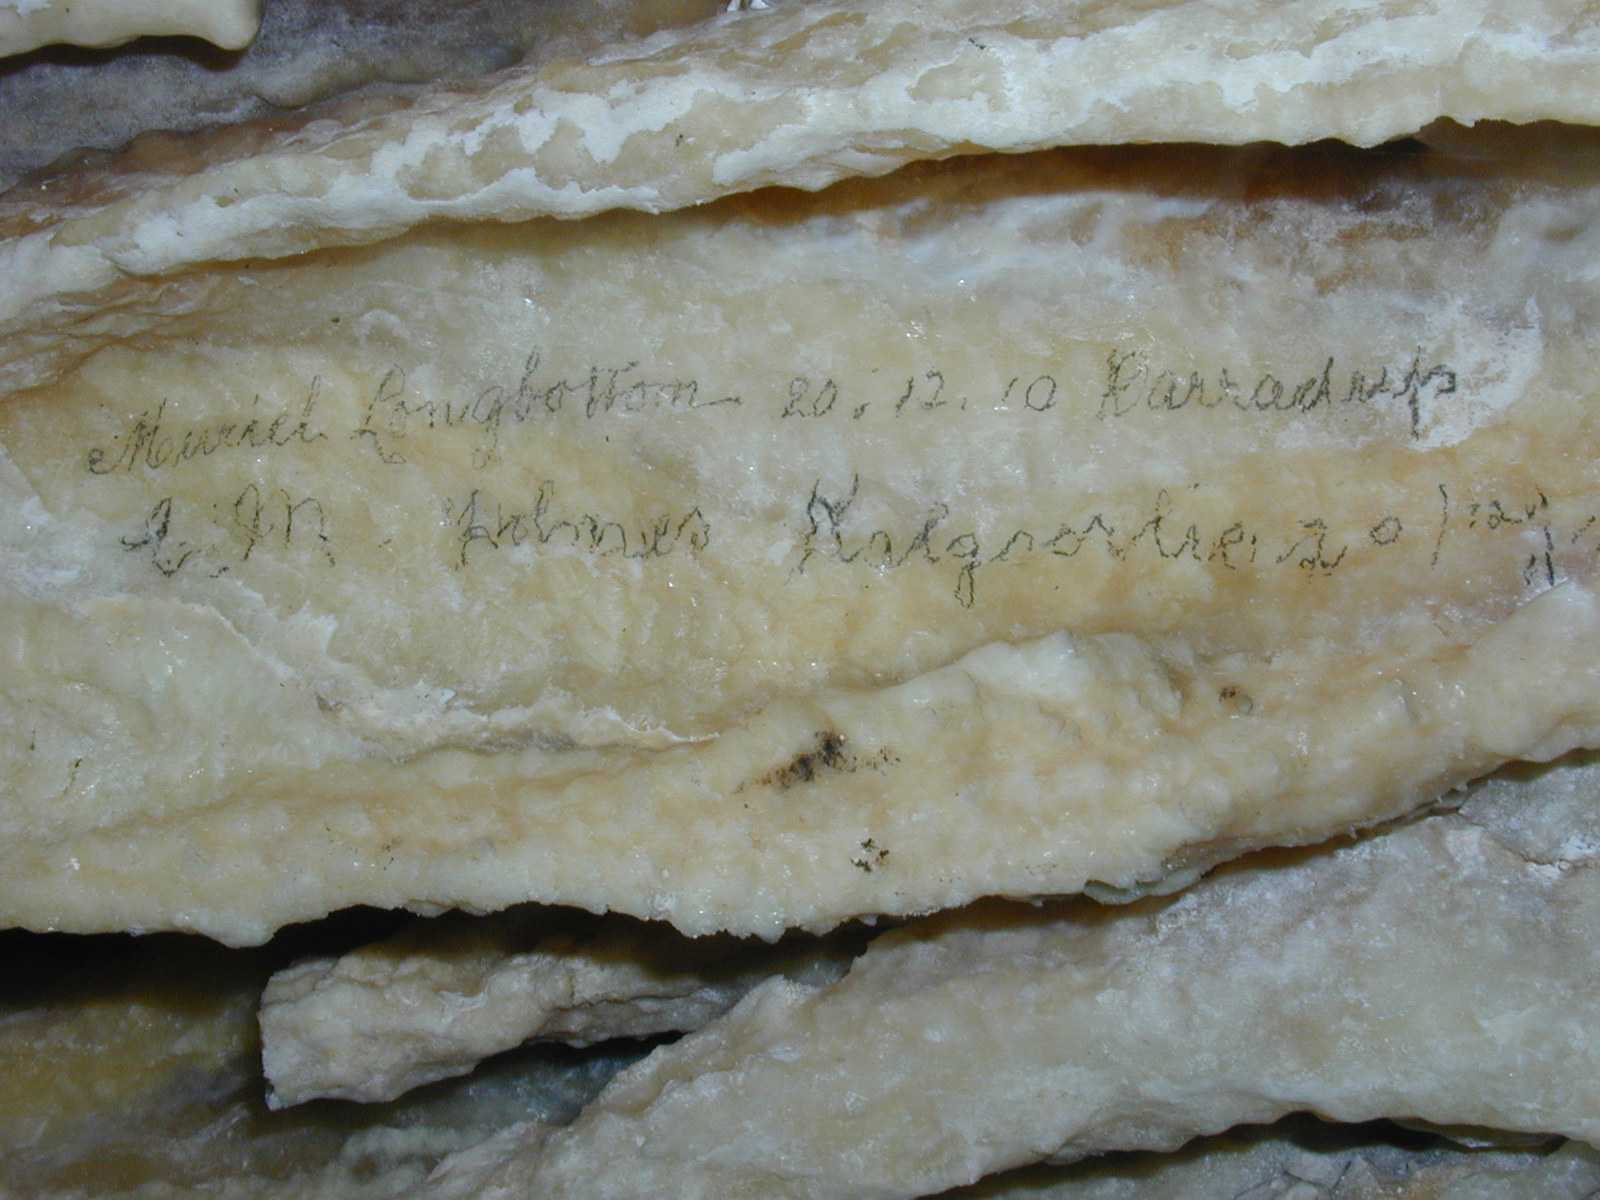 Muriel Longbottom 20.12.10 Karradup
M. Holmes Kalgoorlie 20/12/